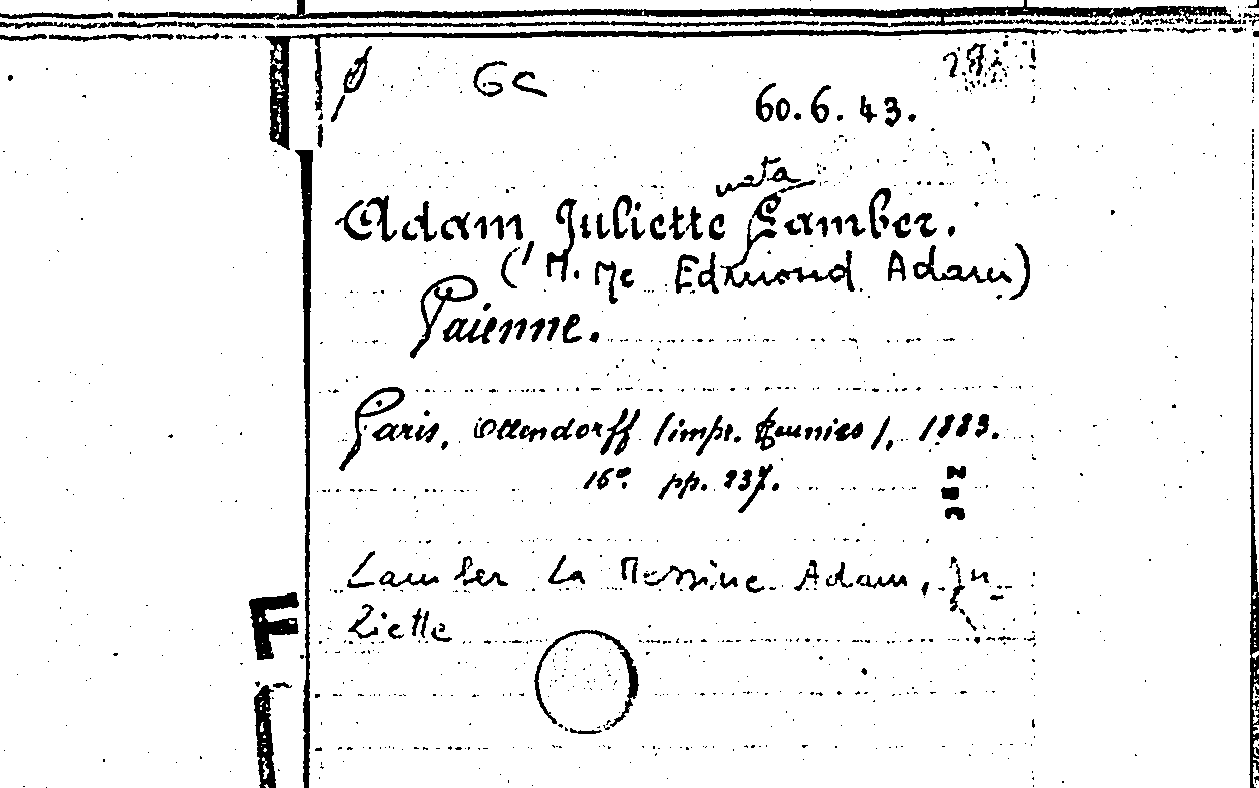 GC
60.6.43.
nata
Adam, Juliette Lamber.
(M.me Edmond Adam)
Païenne.
Paris, Ollendorff (impr. Réunies), 1883.
16°. pp. 237.
Lamber La Messine Adam, Ju-
liette